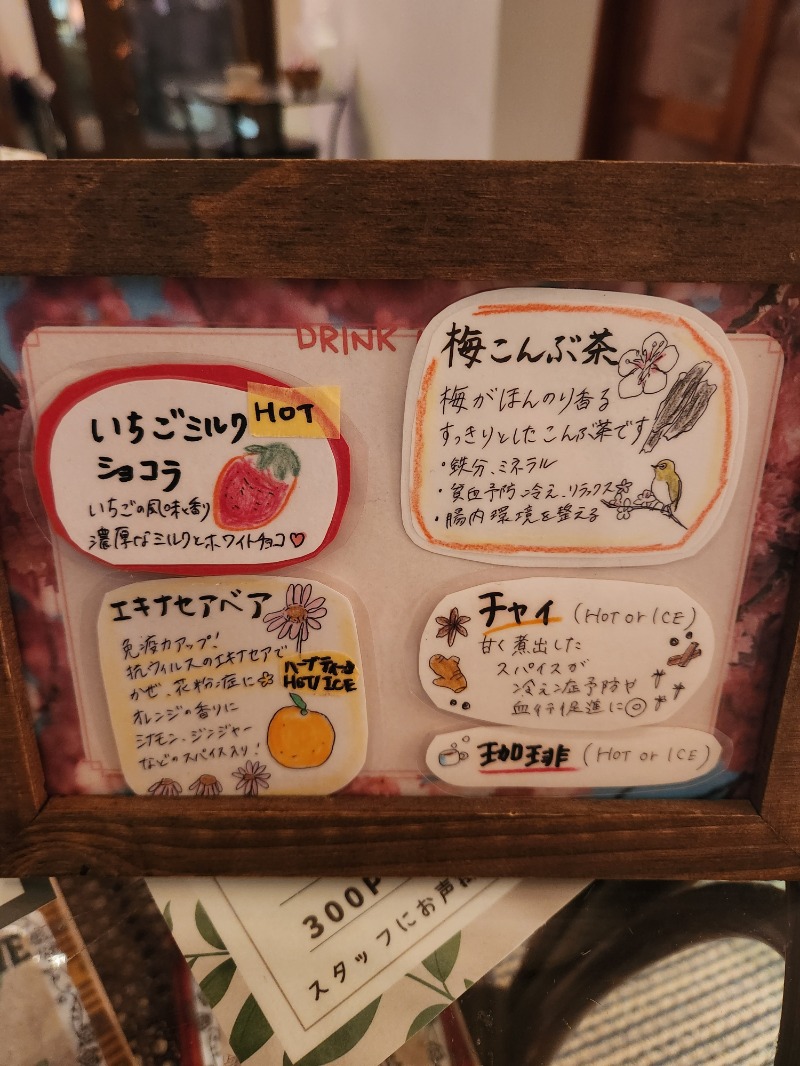 DRINK
いちごミルク
ショコラ
HOT
いちごの風味香り
濃厚なミルクとホワイトチョコ♡
梅こんぶ茶
梅がほんのり香る
すっきりとしたこんぶ茶です
・鉄分、ミネラル
・貧血予防、冷え、リラックス
・腸内環境を整える
エキナセアベア
免疫力アップ!
抗ウィルスのエキナセアで
かぜ、花粉症に
オレンジの香りに
シナモン、ジンジャー
などのスパイス入り!
ハーブティー
HOT/ICE
チャイ (HOT or ICE)
甘く煮出した
スパイスが
冷え症予防や
血行促進に◎
珈琲 (HOT or ICE)
300
スタッフにお声